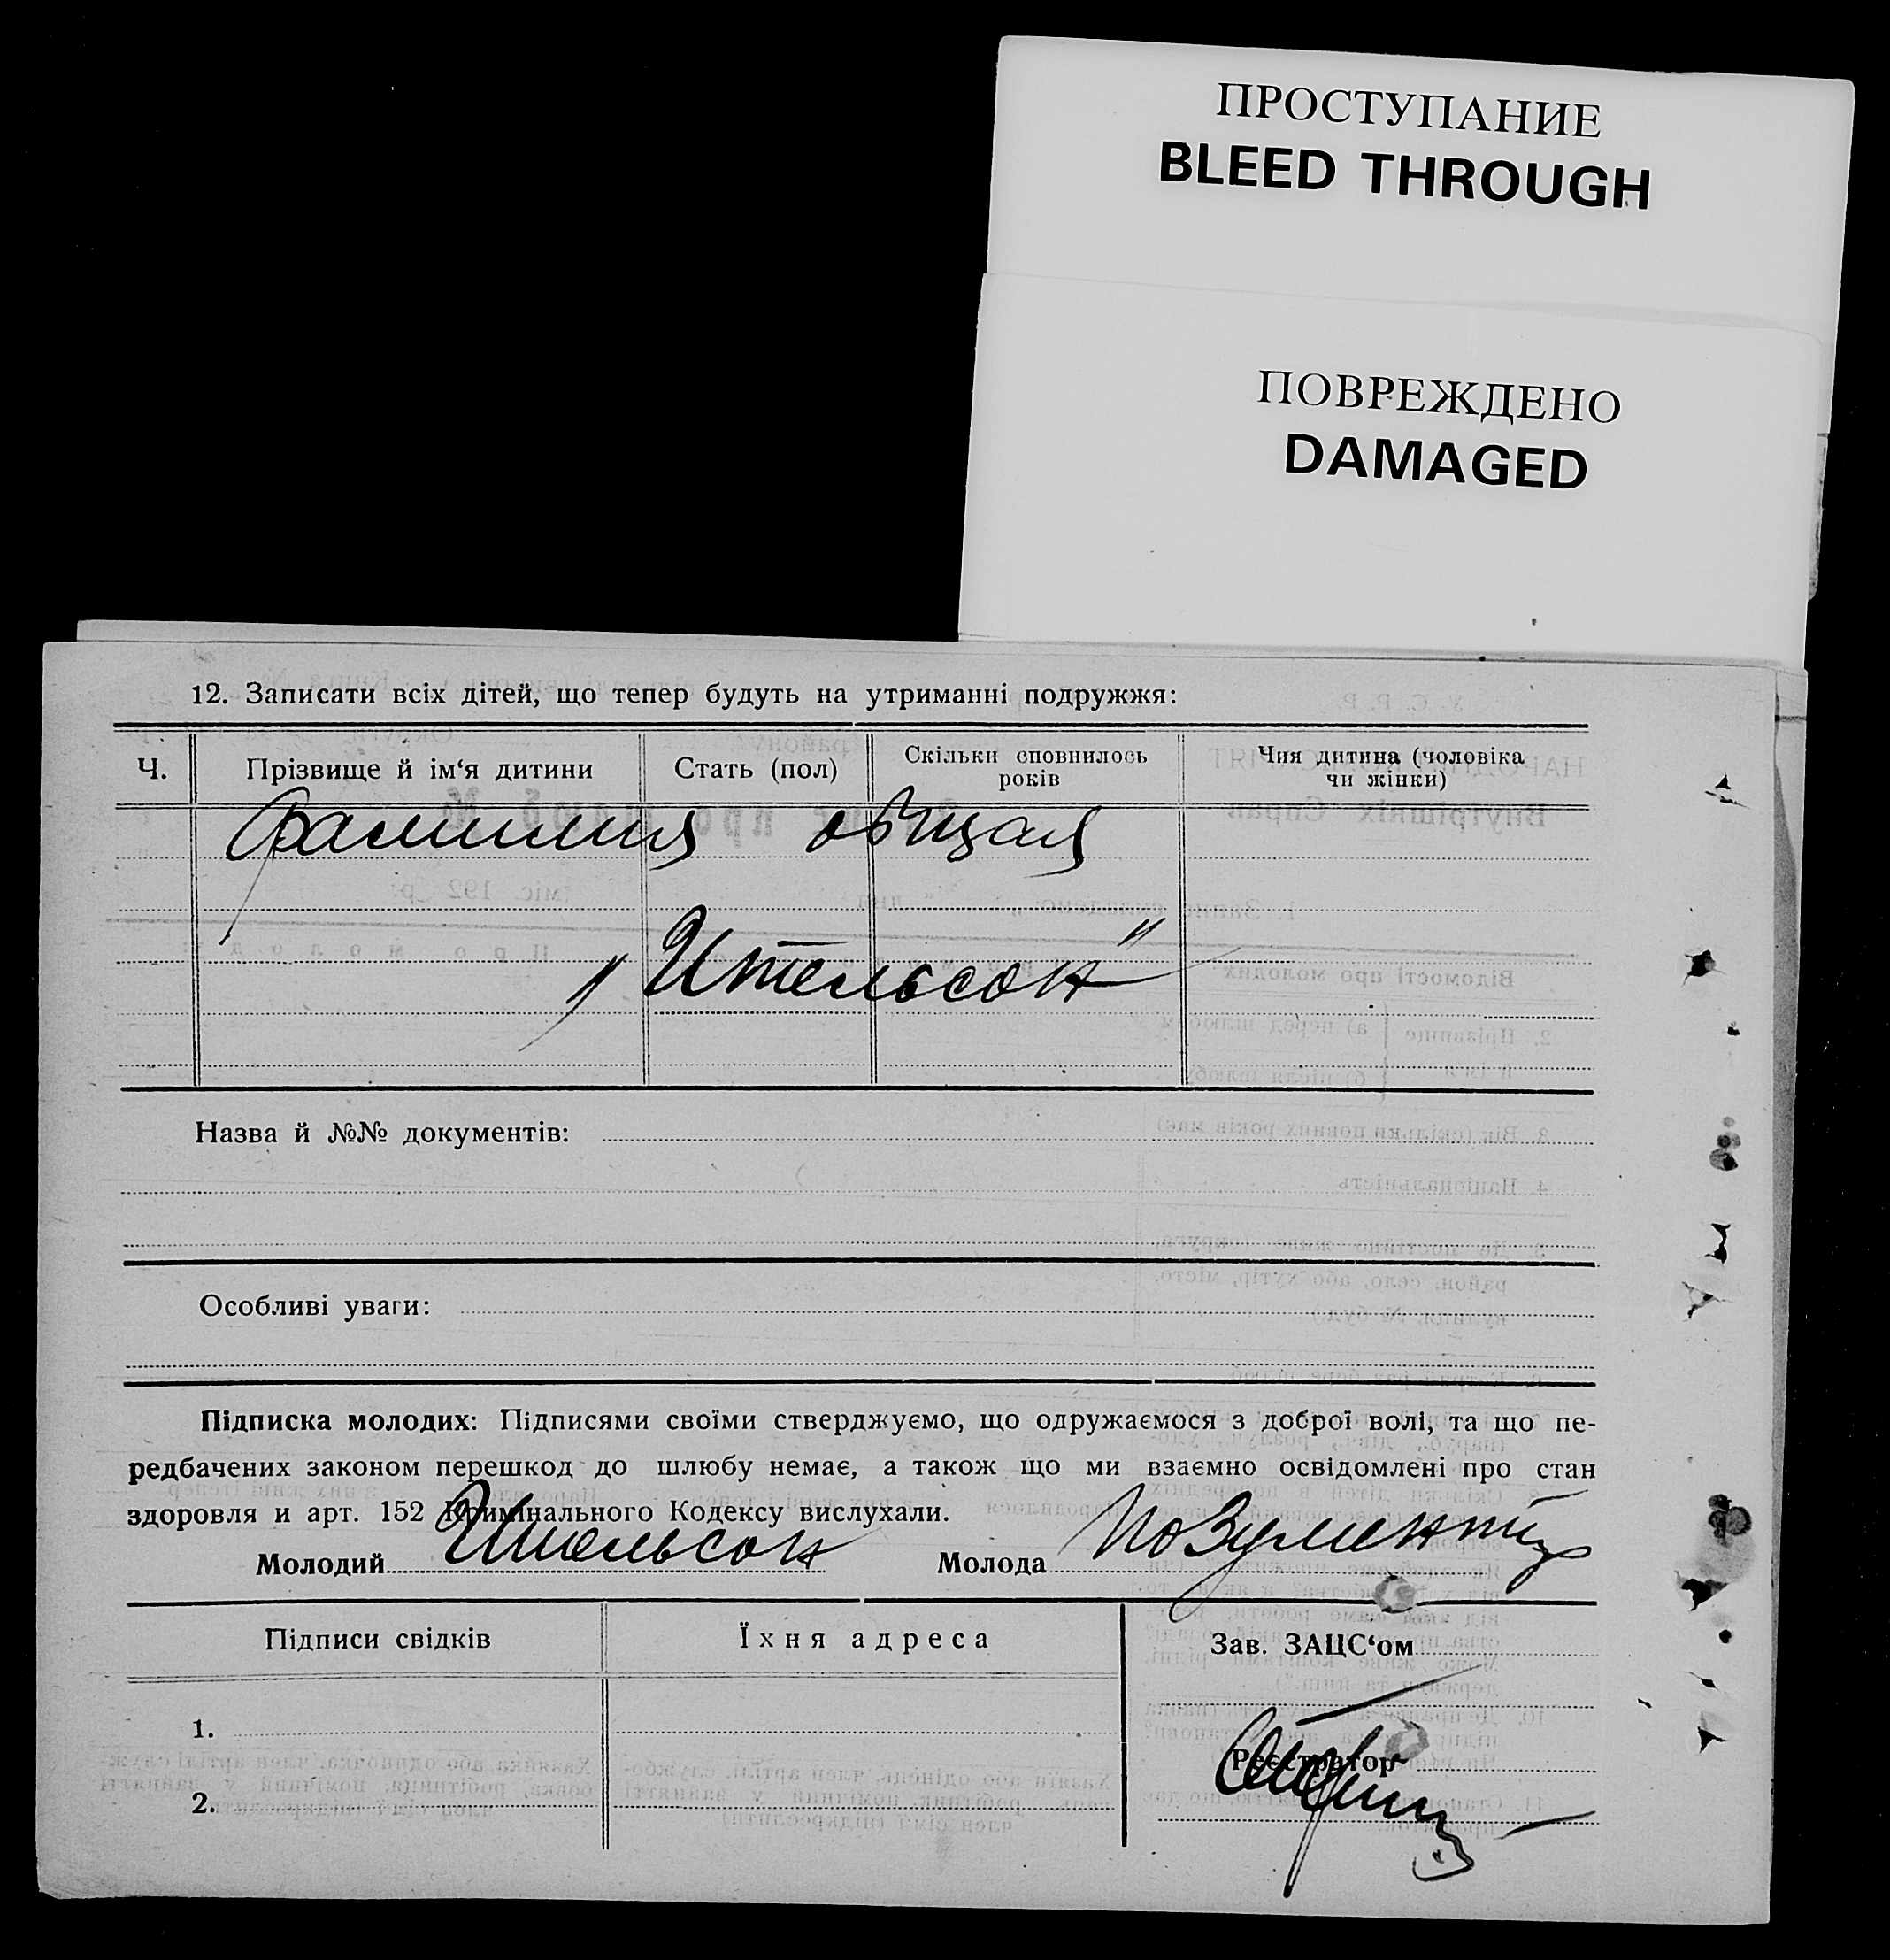 ПРОСТУПАНИЕ
BLEED THROUGH
ПОВРЕЖДЕНО
DAMAGED
12. Записати всіх дітей, що тепер будуть на утриманні подружжя:
Ч. Прізвище й ім‘я дитини Стать (пол) Скільки сповнилось років Чия дитина (чоловіка чи жінки)
Фамилия общая
„Ительсон"
Назва й №№ документів:
Особливі уваги:
Підписка молодих: Підписями своїми стверджуємо, що одружаємося з доброї волі, та що пе-
редбачених законом перешкод до шлюбу немає, а також що ми взаємно освідомлені про стан
здоровля и арт. 152 Кримінального Кодексу вислухали.
Молодий Ительсон Молода Позумент
Підписи свідків Їхня адреса Зав. ЗАЦС‘ом
1.
Реєстратор
2.